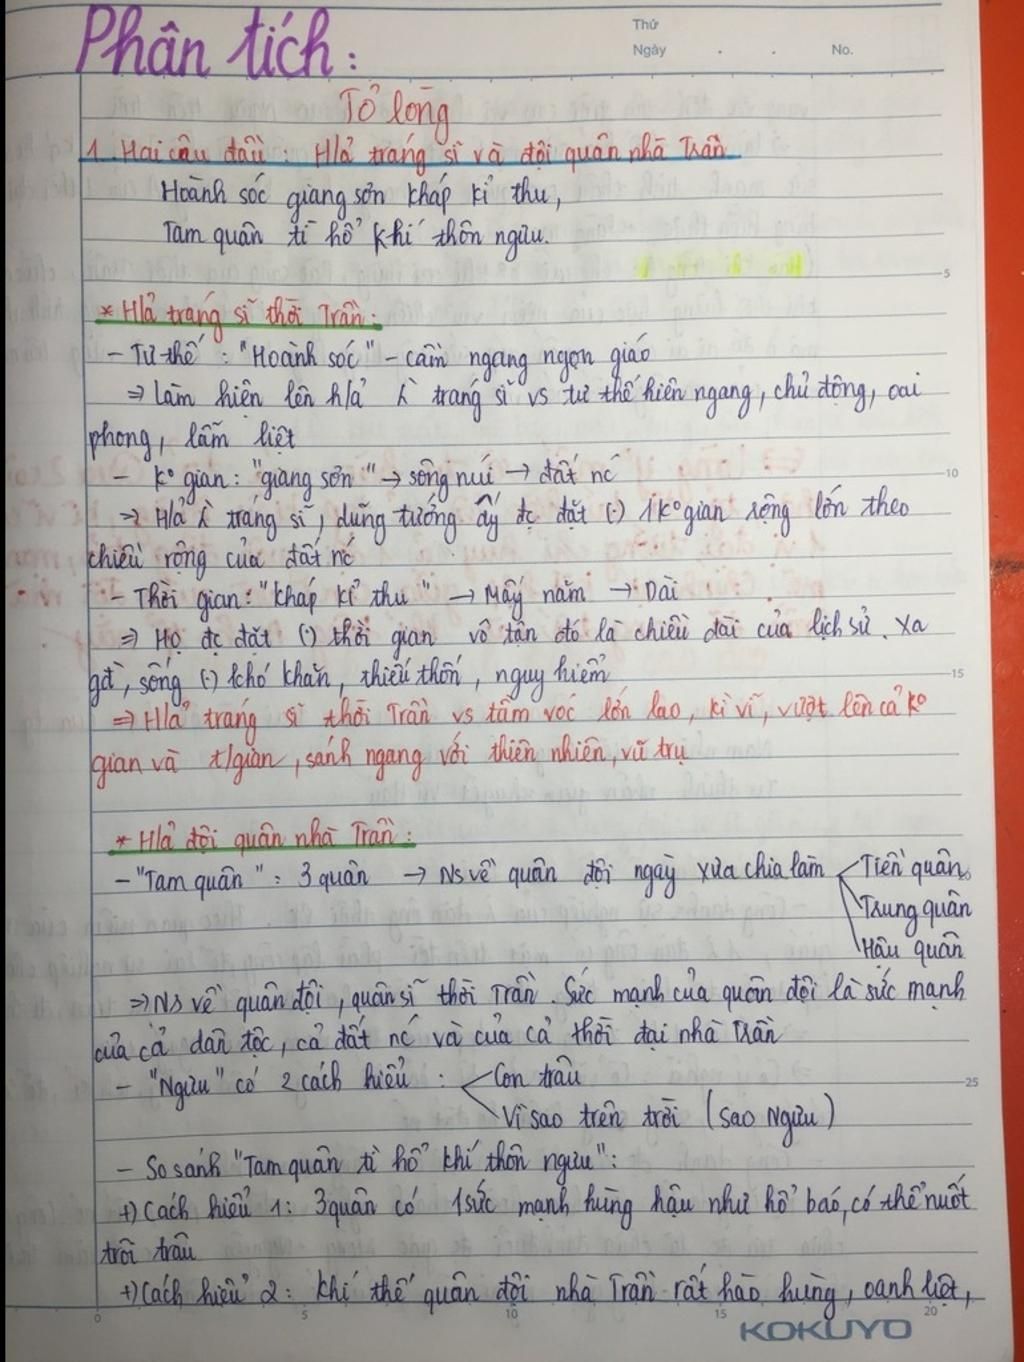 Phân tích:
Thứ
Ngày . . No.
Tỏ lòng
1. Hai câu đầu: H/ả tráng sĩ và đội quân nhà Trần
Hoành sóc giang sơn kháp kỉ thu,
Tam quân tì hổ khí thôn ngưu.
5
* H/ả tráng sĩ thời Trần:
- Tư thế: "Hoành sóc" - cầm ngang ngọn giáo
⇒ Làm hiện lên h/ả tráng sĩ vs tư thế hiên ngang, chủ động, oai
phong, lẫm liệt
- ko gian: "giang sơn" → sông núi → đất nc
10
⇒ H/ả tráng sĩ, dũng tướng ấy đc đặt (.) 1 ko gian rộng lớn theo
chiều rộng của đất nc
- Thời gian: "kháp kỉ thu" → Mấy năm → Dài
⇒ Họ đc đặt (.) thời gian vô tận đó là chiều dài của lịch sử. Xa
gđ, sống (.) khó khăn, thiếu thốn, nguy hiểm
15
⇒ H/ả tráng sĩ thời Trần vs tầm vóc lớn lao, kì vĩ, vượt lên cả ko
gian và t/gian, sánh ngang với thiên nhiên, vũ trụ
* H/ả đội quân nhà Trần:
- "Tam quân": 3 quân → Ns về quân đội ngày xưa chia làm Tiền quân
Trung quân
Hậu quân
⇒ Ns về quân đội, quân sĩ thời Trần. Sức mạnh của quân đội là sức mạnh
của cả dân tộc, cả đất nc và của cả thời đại nhà Trần
- "Ngưu" có 2 cách hiểu: Con trâu
25
Vì sao trên trời (sao Ngưu)
- So sánh "Tam quân tì hổ khí thôn ngưu":
+) Cách hiểu 1: 3 quân có 1 sức mạnh hùng hậu như hổ báo, có thể nuốt
trôi trâu
+) Cách hiểu 2: khí thế quân đội nhà Trần rất hào hùng, oanh liệt,
0 5 10 15 20
KOKUYO